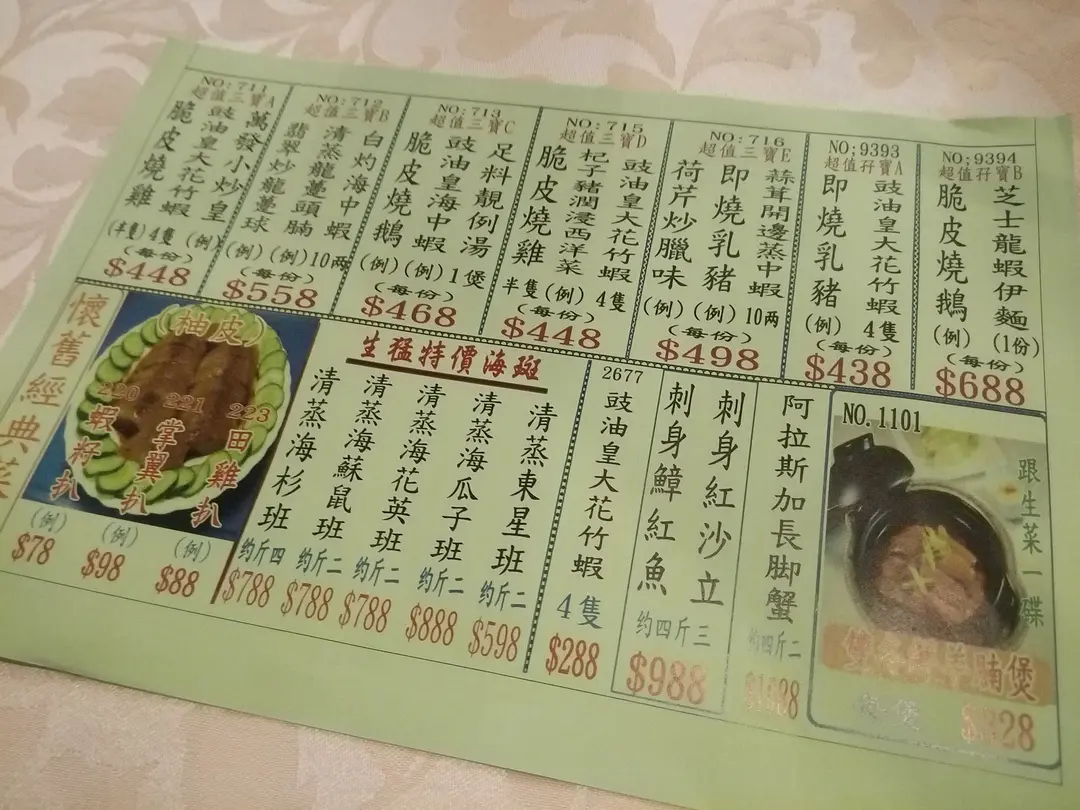 NO:711
超值三寶A
萬發小炒皇
豉油皇大花竹蝦
脆皮燒雞
(半隻) 4隻 (例)
(每份)
$448
NO:712
超值三寶B
白灼海中蝦
清蒸龍躉頭腩
翡翠炒龍躉球
(例) (例) 10两
(每份)
$558
NO:713
超值三寶C
足料靚例湯
豉油皇海中蝦
脆皮燒鵝
(例) (例) 1煲
(每份)
$468
NO:715
超值三寶D
豉油皇大花竹蝦
杞子豬潤浸西洋菜
脆皮燒雞
半隻 (例) 4隻
(每份)
$448
NO:716
超值三寶E
蒜茸開邊蒸中蝦
即燒乳豬
荷芹炒臘味
(例) (例) 10两
(每份)
$498
NO:9393
超值孖寶A
豉油皇大花竹蝦
即燒乳豬
(例) 4隻
(每份)
$438
NO:9394
超值孖寶B
芝士龍蝦伊麵
脆皮燒鵝
(例) (1份)
(每份)
$688
懷舊經典菜
(柚皮)
220
蝦籽扒
(例)
$78
221
掌翼扒
(例)
$98
223
田雞扒
(例)
$88
生猛特價海斑
清蒸東星班
约斤二
$598
清蒸海瓜子班
约斤二
$888
清蒸海花英班
约斤二
$788
清蒸海蘇鼠班
约斤二
$788
清蒸海杉班
约斤四
$788
2677
豉油皇大花竹蝦
4隻
$288
刺身紅沙立
刺身鱆紅魚
约四斤三
$988
阿拉斯加長脚蟹
约四斤二
NO.1101
跟生菜一碟
腩煲